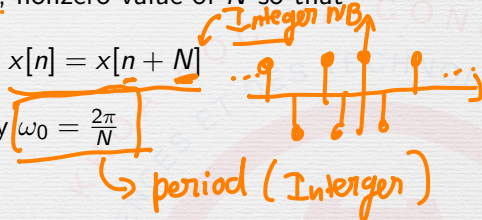 , nonzero value of N so that
Integer n/B
x[n] = x[n + N]
y ω₀ = 2π/N
period (Interger)